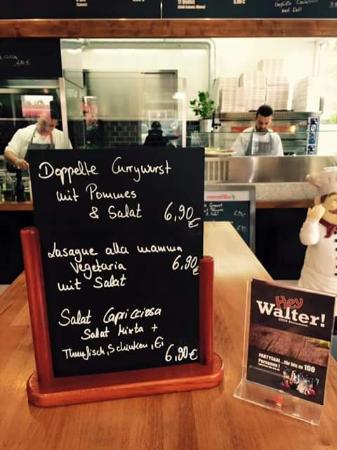 Doppelte Currywurst
mit Pommes
& Salat 6,90€
Lasagne alla mamma
Vegetaria 6,90€
mit Salat
Salat Capricciosa
Salat Mixta +
Thunfisch, Schinken, Ei 6,90€
Hey
Walter!
PARTYSAAL
100
Personen!